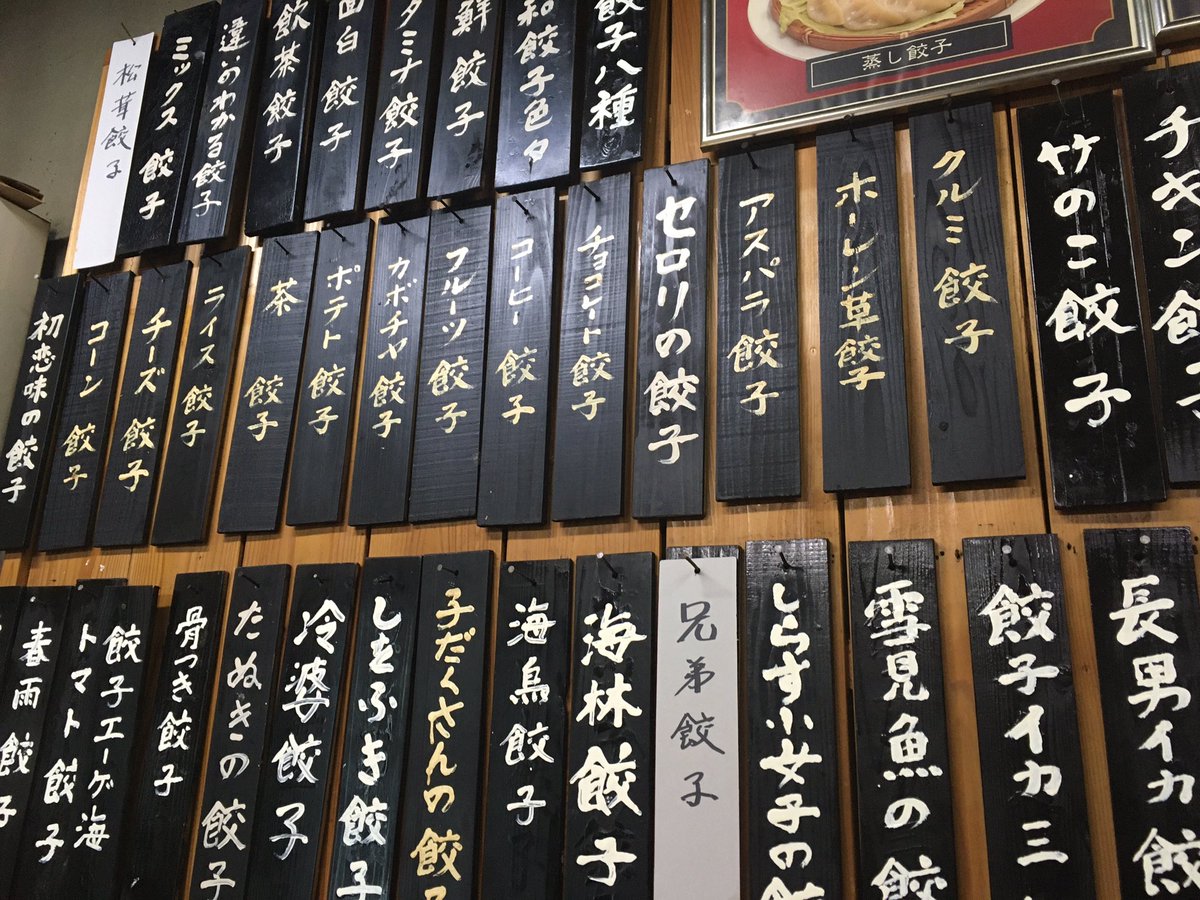 蒸し餃子
餃子八種
和餃子色々
鮮餃子
タミナ餃子
面白餃子
飲茶餃子
違いのわかる餃子
ミックス餃子
松茸餃子
チキン餃子
竹のこ餃子
クルミ餃子
ホーレン草餃子
アスパラ餃子
セロリの餃子
チョコレート餃子
コーヒー餃子
フルーツ餃子
カボチャ餃子
ポテト餃子
茶餃子
ライス餃子
チーズ餃子
コーン餃子
初恋味の餃子
長男イカ餃
餃子イカ三
雪見魚の餃
しらす小女子の餃
兄弟餃子
海林餃子
海鳥餃子
子だくさんの餃子
しをふき餃子
冷婆餃子
たぬきの餃子
骨つき餃子
餃子エーゲ海
トマト餃子
春雨餃子